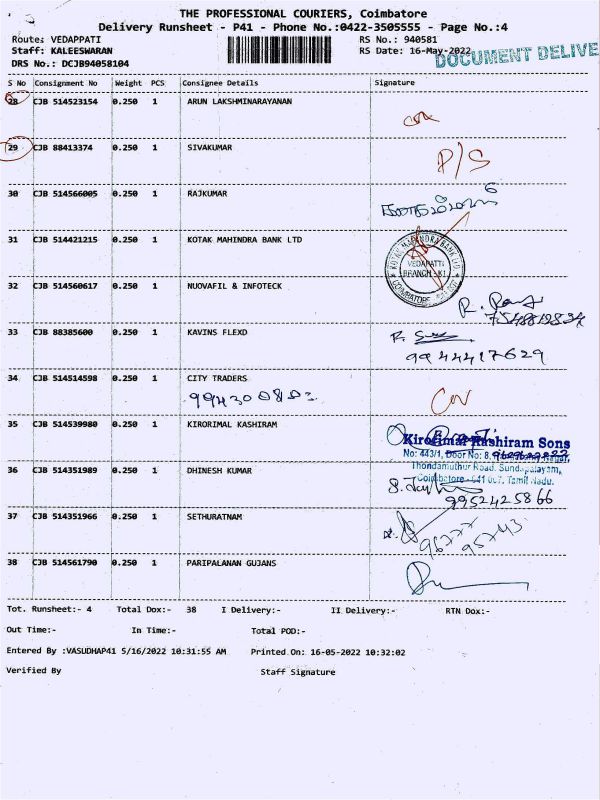 THE PROFESSIONAL COURIERS, Coimbatore
Delivery Runsheet - P41 - Phone No.:0422-3505555 - Page No.:4
Route: VEDAPPATI RS No.: 940581
Staff: KALEESWARAN RS Date: 16-May-2022
DRS No.: DCJB94058104
DOCUMENT DELIVE
S No Consignment No Weight PCS Consignee Details Signature
28 CJB 514523154 0.250 1 ARUN LAKSHMINARAYANAN
29 CJB 88413374 0.250 1 SIVAKUMAR P/S
30 CJB 514566005 0.250 1 RAJKUMAR
31 CJB 514421215 0.250 1 KOTAK MAHINDRA BANK LTD
KOTAK MAHINDRA BANK LTD.
VEDAPATTI
BRANCH
COIMBATORE
32 CJB 514560617 0.250 1 NUOVAFIL & INFOTECK
33 CJB 88385600 0.250 1 KAVINS FLEXD
9944417629
34 CJB 514514598 0.250 1 CITY TRADERS
35 CJB 514539980 0.250 1 KIRORIMAL KASHIRAM
Kirorimal Kashiram Sons
No: 443/1, Door No: 8,
Thondamuthur Road, Sundapalayam,
Coimbatore - 641 007. Tamil Nadu.
36 CJB 514351989 0.250 1 DHINESH KUMAR
9952425866
37 CJB 514351966 0.250 1 SETHURATNAM
38 CJB 514561790 0.250 1 PARIPALANAN GUJANS
Tot. Runsheet:- 4 Total Dox:- 38 I Delivery:- II Delivery:- RTN Dox:-
Out Time:- In Time:- Total POD:-
Entered By :VASUDHAP41 5/16/2022 10:31:55 AM Printed On: 16-05-2022 10:32:02
Verified By Staff Signature